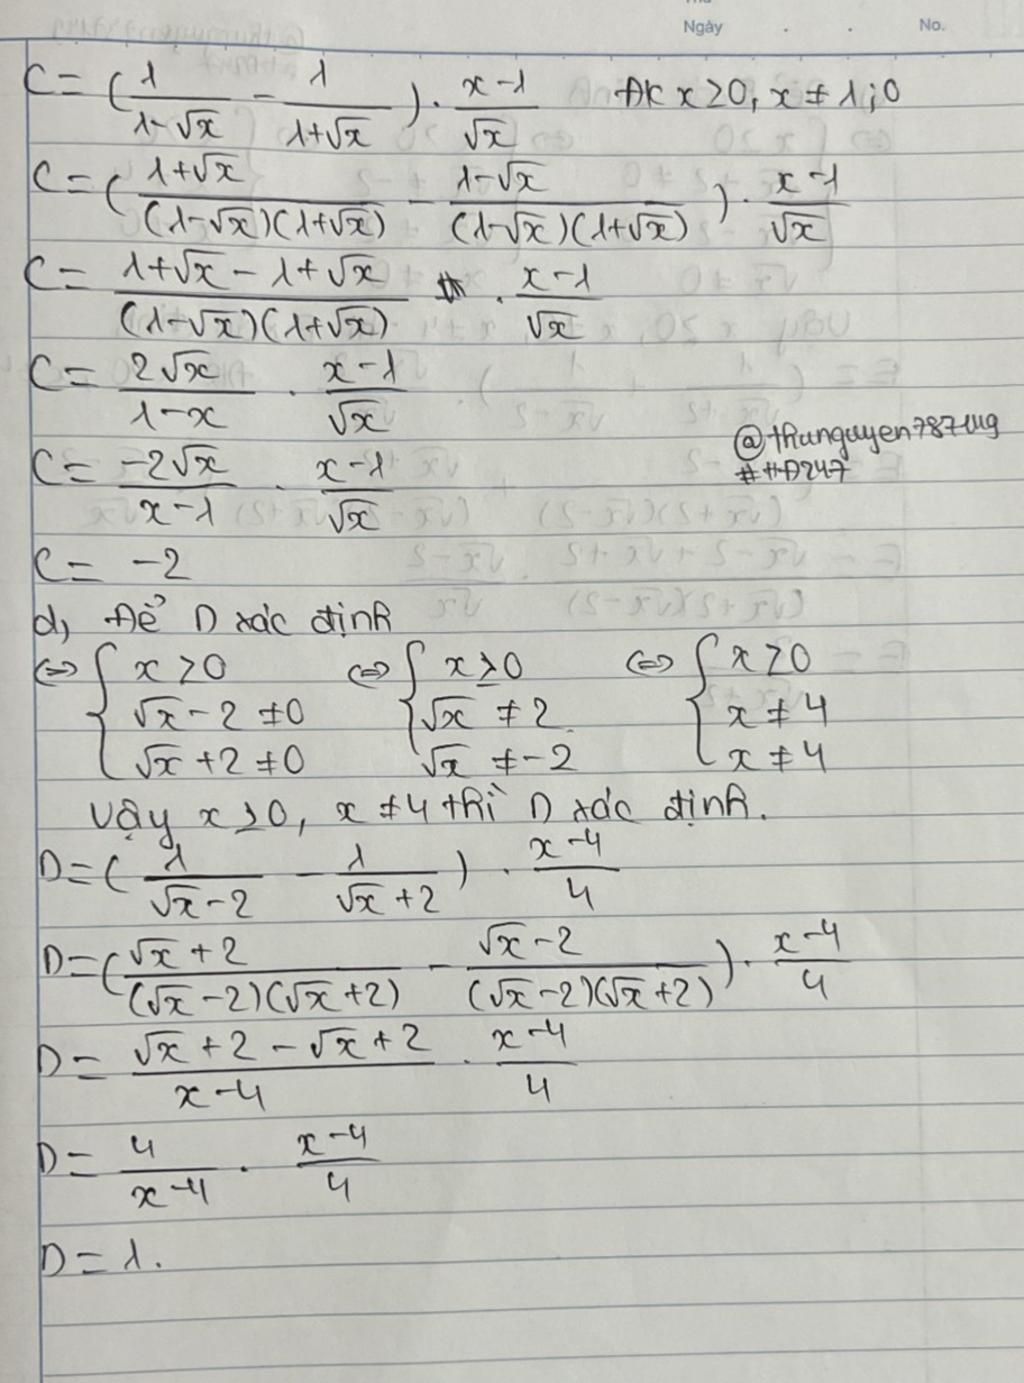 Ngày . . No.
C = (1/(1-√x) - 1/(1+√x)) . (x-1)/√x ĐK x ≥ 0, x ≠ 1; 0
C = ((1+√x)/((1-√x)(1+√x)) - (1-√x)/((1-√x)(1+√x))) . (x-1)/√x
C = (1+√x - 1+√x)/((1-√x)(1+√x)) . (x-1)/√x
C = 2√x/(1-x) . (x-1)/√x
@thunguyen787ug
C = -2√x/(x-1) . (x-1)/√x
#HD247
C = -2
d, Để D xác định
⇔ { x ≥ 0 ⇔ { x ≥ 0 ⇔ { x ≥ 0
√x - 2 ≠ 0 √x ≠ 2 x ≠ 4
√x + 2 ≠ 0 √x ≠ -2 x ≠ 4
Vậy x ≥ 0, x ≠ 4 thì D xác định.
D = (1/(√x-2) - 1/(√x+2)) . (x-4)/4
D = ((√x+2)/((√x-2)(√x+2)) - (√x-2)/((√x-2)(√x+2))) . (x-4)/4
D = (√x+2-√x+2)/(x-4) . (x-4)/4
D = 4/(x-4) . (x-4)/4
D = 1.